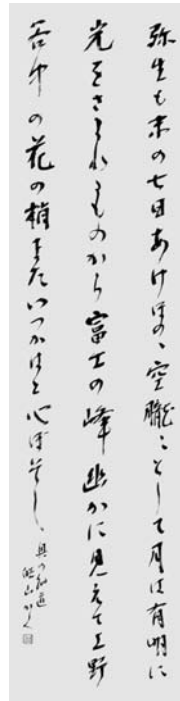 弥生も末の七日あけぼのゝ空朧々として月は有明に
光をさまれるものから富士の峰幽かに見えて上野
谷中の花の梢またいつかはと心ぼそし
奥の細道
かく